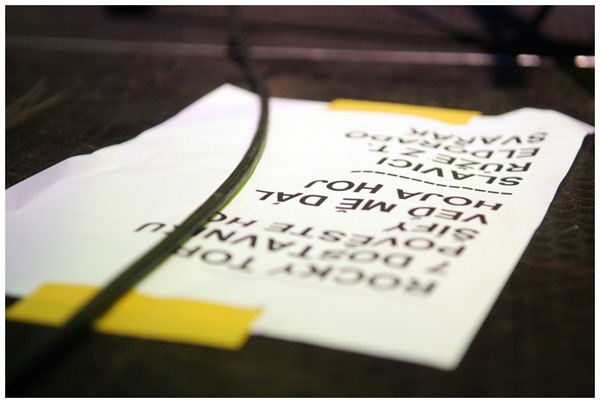 ROCKY TOP
7 DOSTAVNÍKU
POVĚSTE HO
ŠÍFY
VEĎ MĚ DÁL
HOJA HOJ
----------------
SLAVÍCI
RŮŽE Z T.
ELDORADO
SVAŘÁK